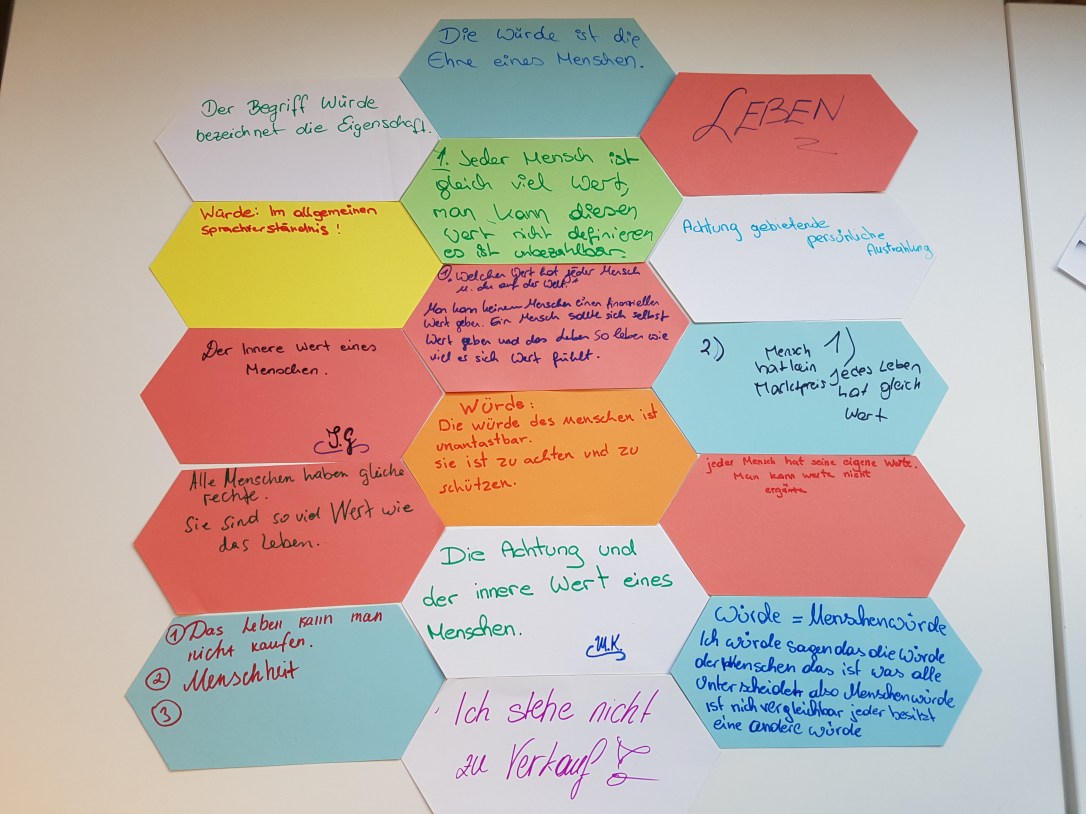 Die Würde ist die
Ehre eines Menschen.
Der Begriff Würde
bezeichnet die Eigenschaft.
LEBEN
1. Jeder Mensch ist
gleich viel Wert,
man kann diesen
Wert nicht definieren
es ist unbezahlbar.
Würde: Im allgemeinen
Sprachverständnis!
Achtung gebietende
persönliche
Austrahlung
1. Welchen Wert hat jeder Mensch
u. du auf der Welt?
Man kann keinem Menschen einen finanziellen
Wert geben. Ein Mensch sollte sich selbst
Wert geben und das Leben so leben wie
viel es sich Wert fühlt.
Der Innere Wert eines
Menschen.
J.G
2) Mensch
hat kein
Marktpreis
1)
Jedes Leben
hat gleich
Wert
Würde:
Die würde des Menschen ist
unantastbar.
sie ist zu achten und zu
schützen.
Alle Menschen haben gleiche
rechte.
Sie sind so viel Wert wie
das Leben.
jeder Mensch hat seine eigene Werte.
Man kann werte nicht
Die Achtung und
der innere Wert eines
Menschen.
M.K.
1 Das Leben kann man
nicht kaufen.
2 Menschheit
3
Würde = Menschenwürde
Ich würde sagen das die Würde
der Menschen das ist was alle
Unterscheidet also Menschenwürde
ist nich vergleichbar jeder besitzt
eine andere würde
Ich stehe nicht
zu Verkauf!